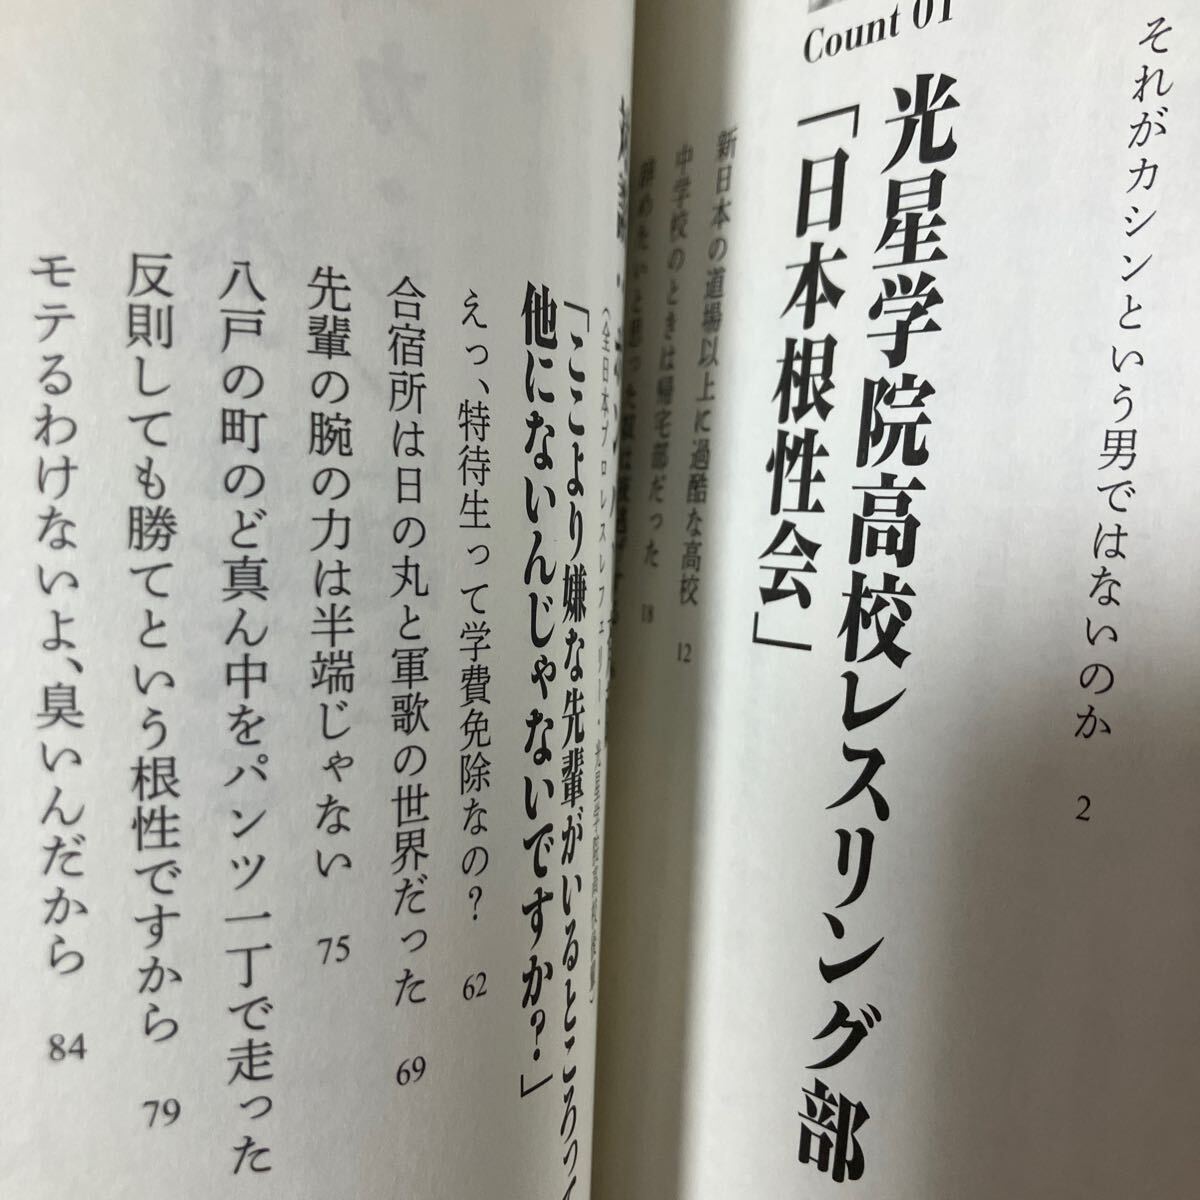 それがカシンという男ではないのか 2
Count 01
光星学院高校レスリング部
「日本根性会」
新日本の道場以上に過酷な高校 12
中学校のときは帰宅部だった 18
辞めたいと思った
(全日本プロレスレフェリー・光星学院高校後輩)
「ここより嫌な先輩がいるところって
他にないんじゃないですか?」
えっ、特待生って学費免除なの? 62
合宿所は日の丸と軍歌の世界だった 69
先輩の腕の力は半端じゃない 75
八戸の町のど真ん中をパンツ一丁で走った
反則しても勝てという根性ですから 79
モテるわけないよ、臭いんだから 84